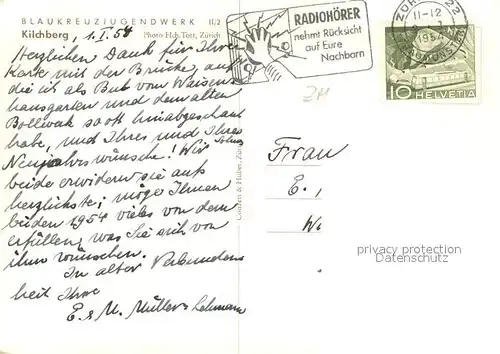 BLAUKREUZJUGENDWERK II/2
Kilchberg, 1. I. 54 Photo Hch. Tott, Zürich
Herzlichen Dank für Ihre
Karte mit der Brücke, auf
die ich als Bub vom Waisen-
hausgarten und dem alten
Bollwerk so oft hinabgeschaut
habe, und Ihres und Ihres Sohnes
Neujahrswünsche! Wir
beide erwidern sie aufs
herzlichste; möge Ihnen
beiden 1954 vieles von dem
erfüllen, was Sie sich von
ihm wünschen.
In alter Verbunden-
heit Ihre
E. & M. Müller-Lehmann
RADIOHÖRER
nehmt Rücksicht
auf Eure
Nachbarn
ZÜRICH 22
11-12
1954
FRAUMÜNSTER
10 HELVETIA
ZH
Frau
E.,
Wi
privacy protection
AnsichtskartenVersand.com